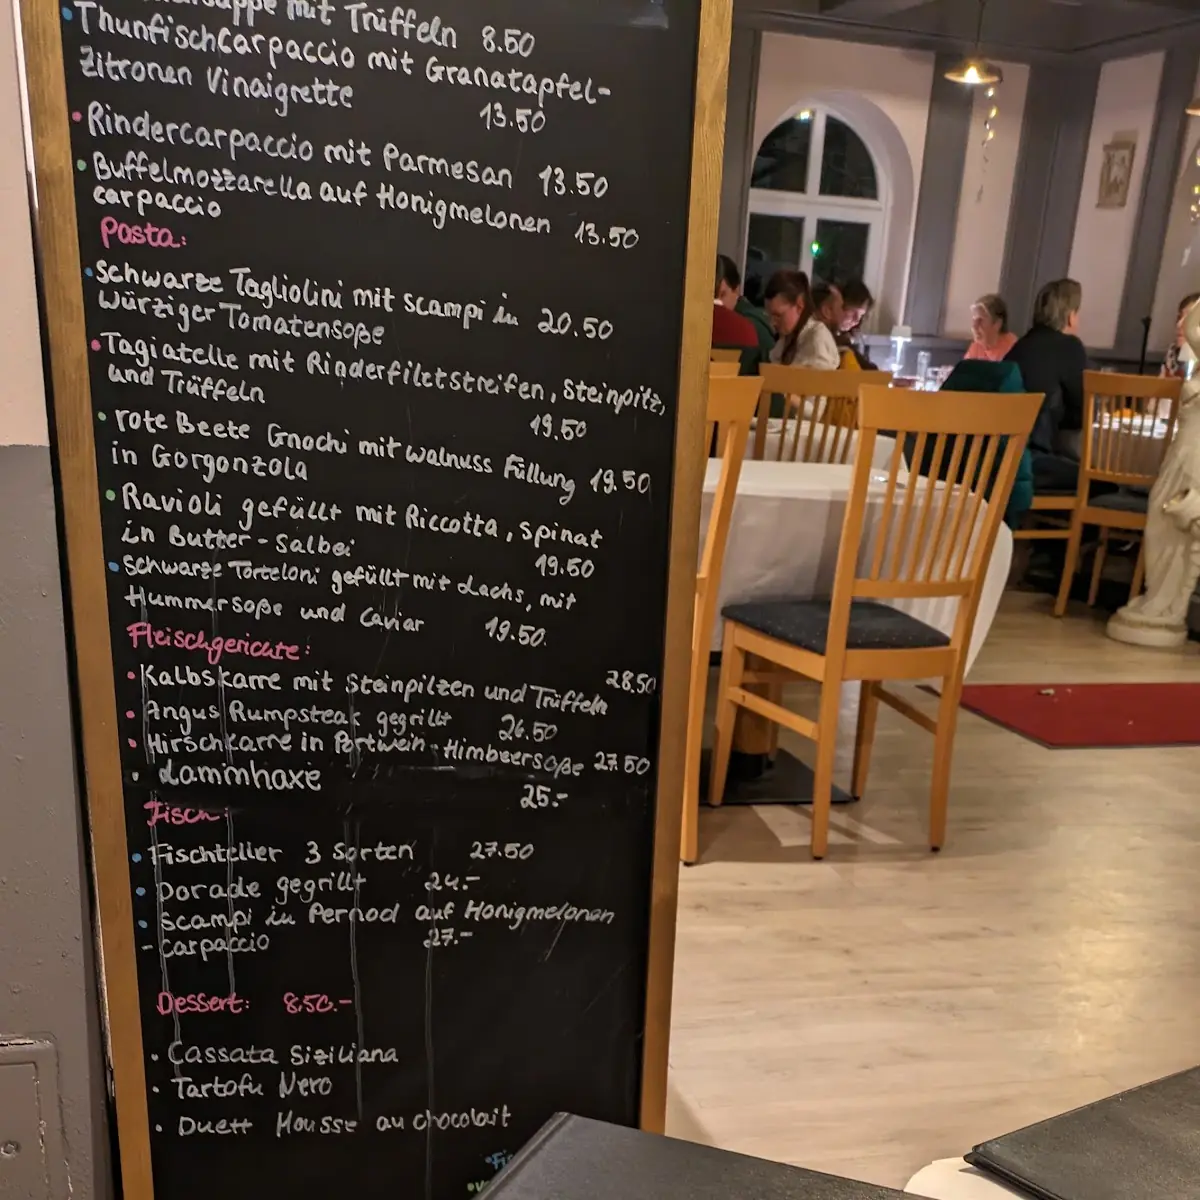 mit Trüffeln 8.50
• Thunfischcarpaccio mit Granatapfel-
Zitronen Vinaigrette 13.50
• Rindercarpaccio mit Parmesan 13.50
• Buffelmozzarella auf Honigmelonen 13.50
carpaccio
Pasta:
• schwarze Tagliolini mit scampi in 20.50
würziger Tomatensoße
• Tagiatelle mit Rinderfiletstreifen, Steinpilz,
und Trüffeln 19.50
• rote Beete Gnochi mit walnuss Füllung 19.50
in Gorgonzola
• Ravioli gefüllt mit Riccotta, Spinat
in Butter-Salbei 19.50
• schwarze Torteloni gefüllt mit Lachs, mit
Hummersoße und Caviar 19.50.
Fleischgerichte:
• Kalbskarre mit Steinpilzen und Trüffeln 28.50
• Angus Rumpsteak gegrillt 26.50
• Hirschkarre in Portwein-Himbeersoße 27.50
• Lammhaxe 25.-
Fisch:
• Fischteller 3 Sorten 27.50
• Dorade gegrillt 24.-
• scampi in Pernod auf Honigmelonen
- carpaccio 27.-
Dessert: 8.50.-
• Cassata Siziliana
• Tartofu Nero
• Duett Mousse au chocolait